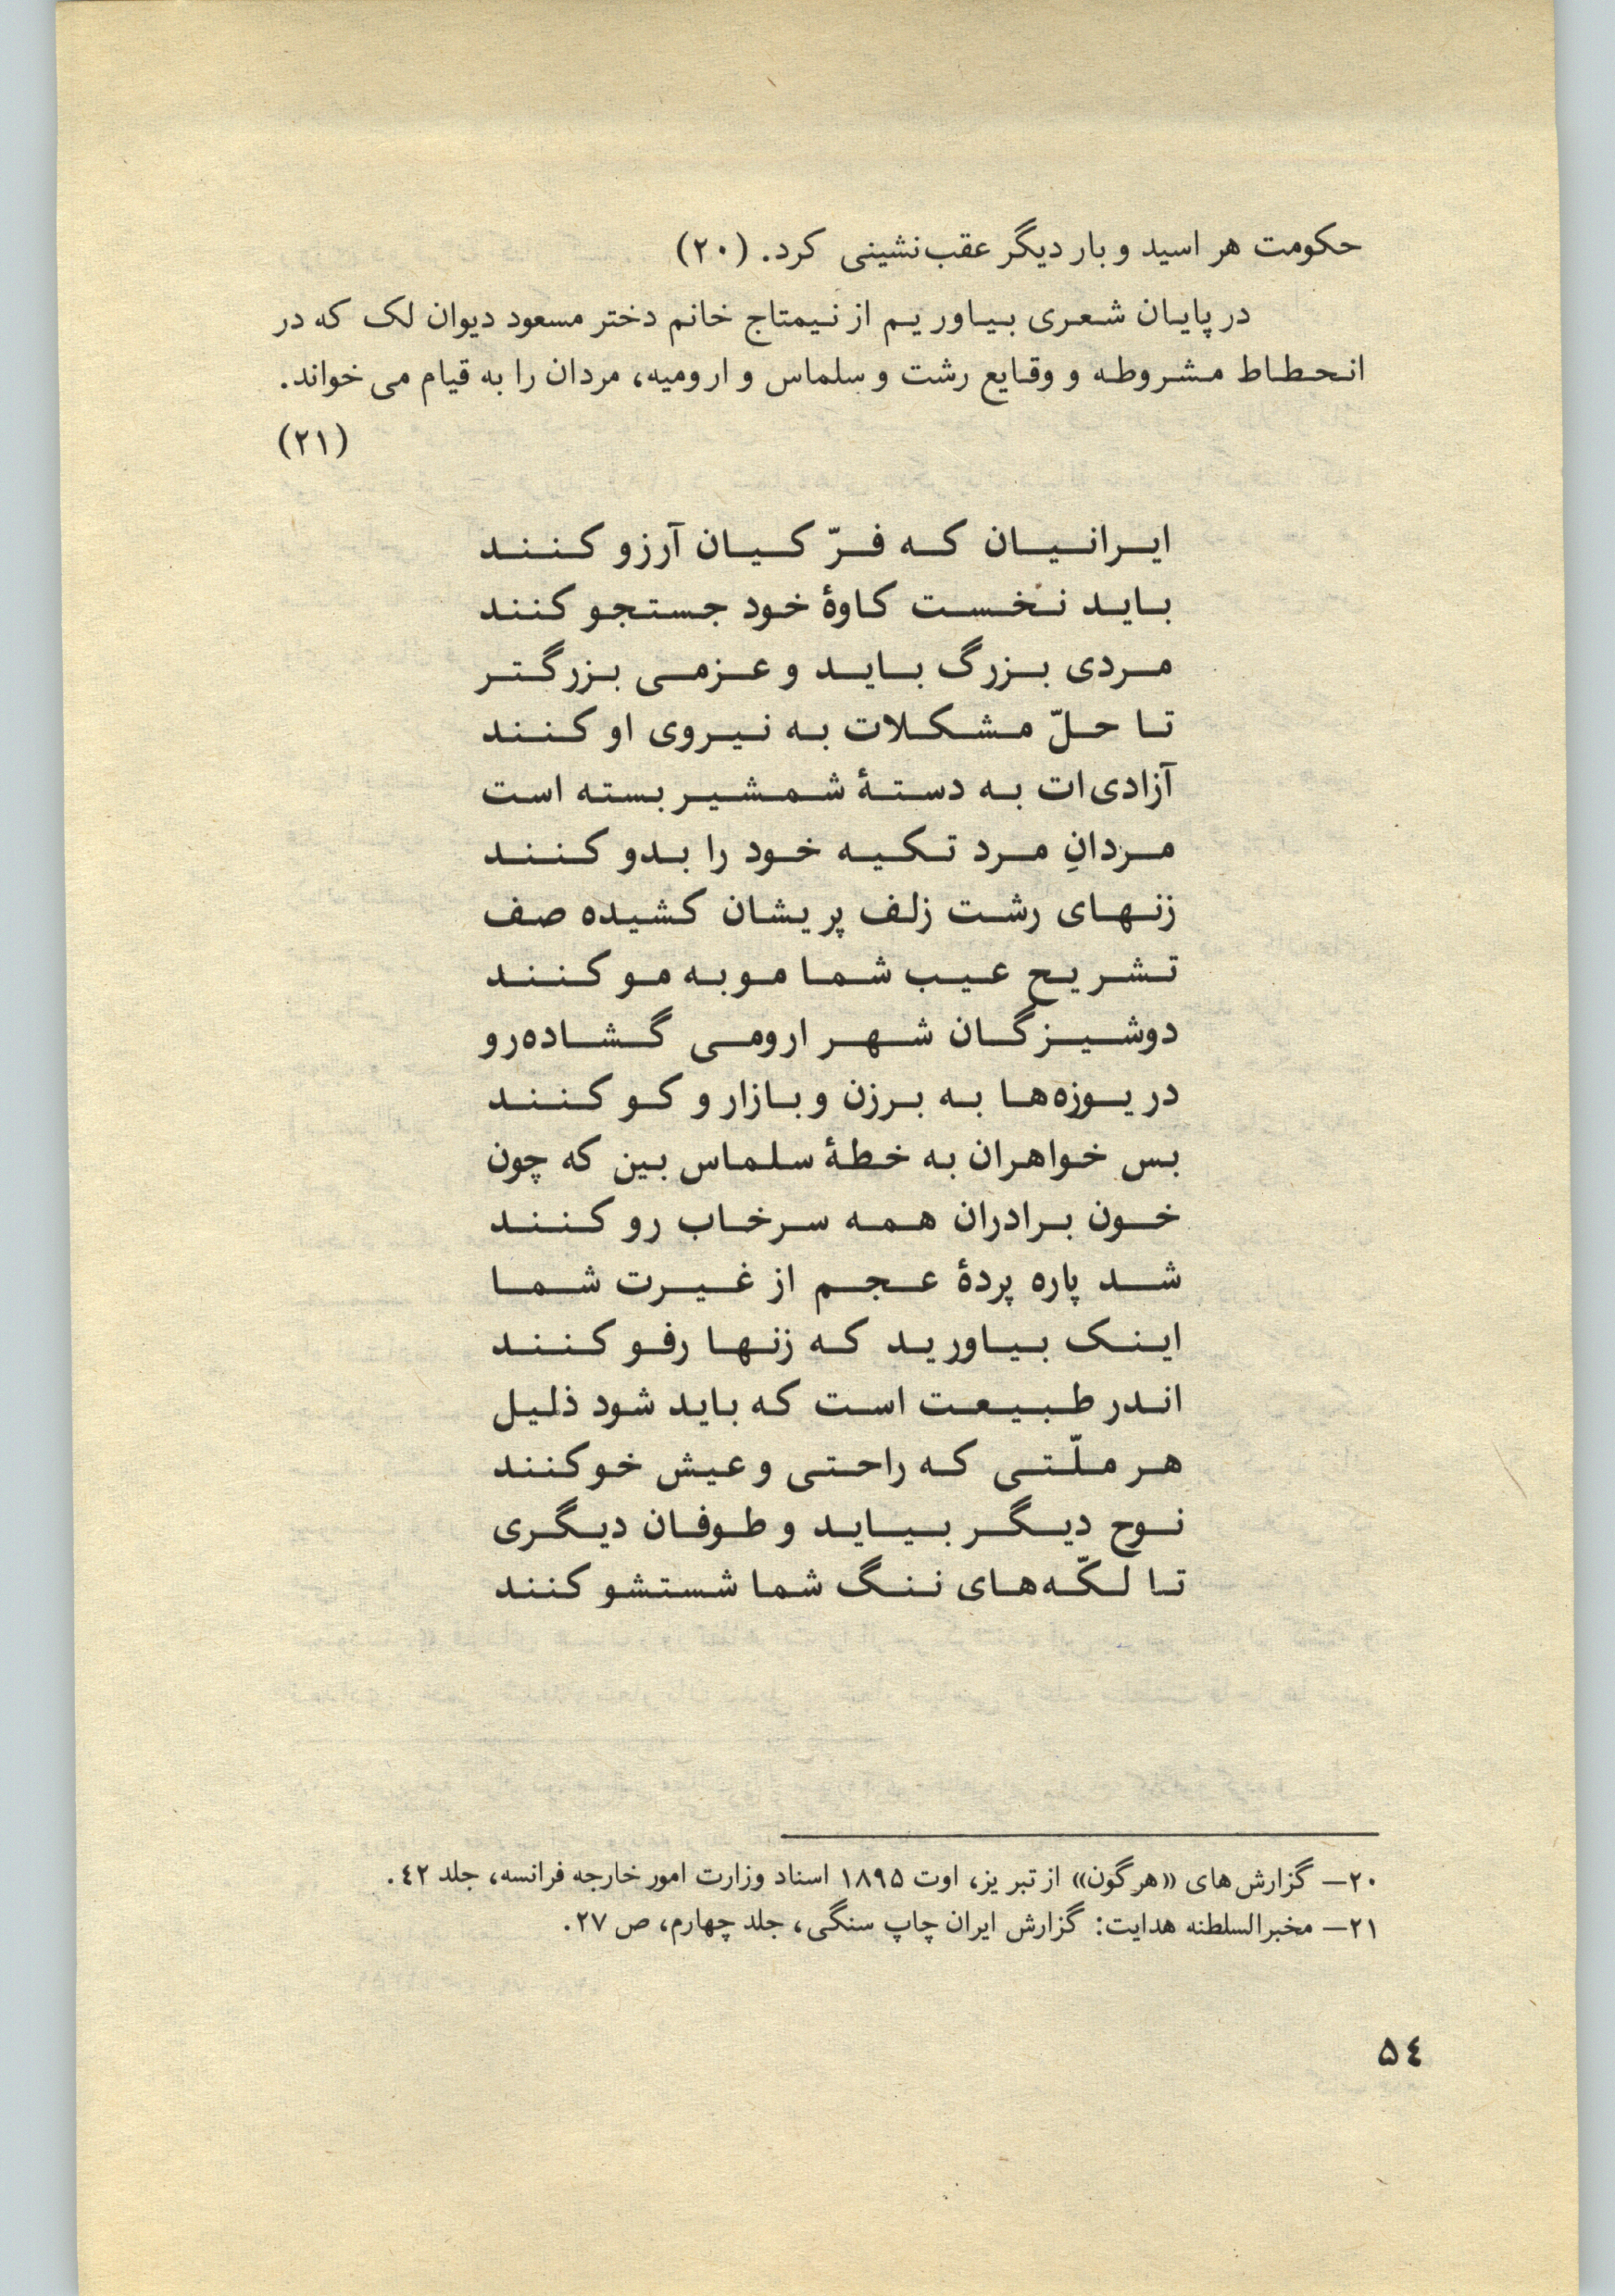 حکومت هراسید و بار دیگر عقب‌نشینی کرد. (۲۰)
در پایان شعری بیاوریم از نیمتاج خانم دختر مسعود دیوان لک که در
انحطاط مشروطه و وقایع رشت و سلماس و ارومیه، مردان را به قیام می‌خواند.
(۲۱)
ایرانیان که فرّ کیان آرزو کنند
باید نخست کاوهٔ خود جستجو کنند
مردی بزرگ باید و عزمی بزرگتر
تا حلّ مشکلات به نیروی او کنند
آزادی‌ات به دستهٔ شمشیر بسته است
مردانِ مرد تکیه خود را بدو کنند
زنهای رشت زلف پریشان کشیده صف
تشریح عیب شما مو به مو کنند
دوشیزگان شهر ارومی گشاده‌رو
دریوزه‌ها به برزن و بازار و کو کنند
بس خواهران به خطهٔ سلماس بین که چون
خون برادران همه سرخاب رو کنند
شد پاره پردهٔ عجم از غیرت شما
اینک بیاورید که زنها رفو کنند
اندر طبیعت است که باید شود ذلیل
هر ملّتی که راحتی و عیش خو کنند
نوح دیگر بیاید و طوفان دیگری
تا لکّه‌های ننگ شما شستشو کنند
۲۰— گزارش‌های «هرگون» از تبریز، اوت ۱۸۹۵ اسناد وزارت امور خارجه فرانسه، جلد ۴۲.
۲۱— مخبرالسلطنه هدایت: گزارش ایران چاپ سنگی، جلد چهارم، ص ۲۷.
۵۴